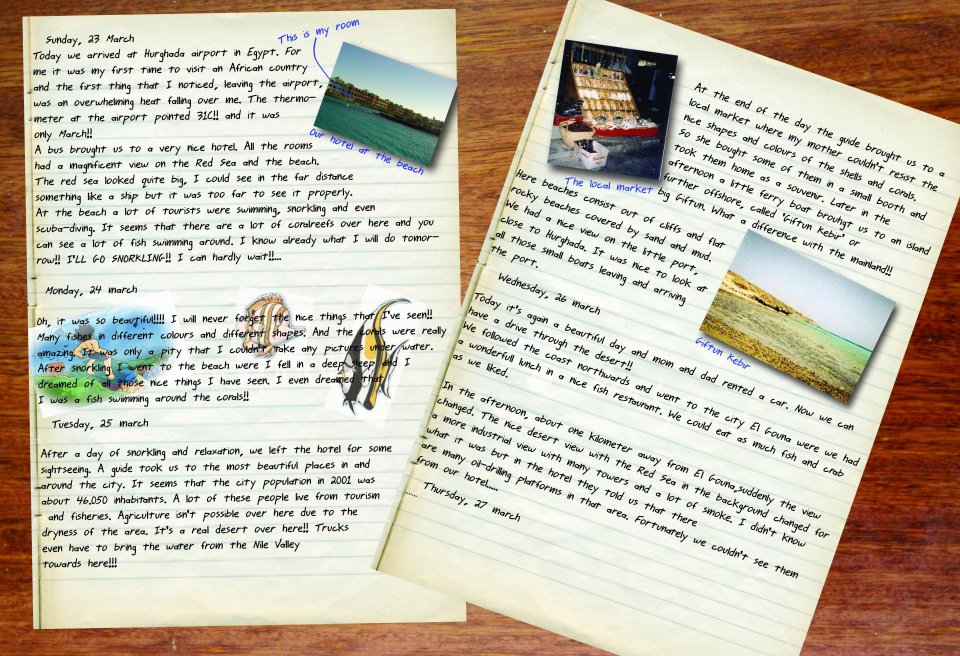 Sunday, 23 March
This is my room
Today we arrived at Hurghada airport in Egypt. For
me it was my first time to visit an African country
and the first thing that I noticed, leaving the airport,
was an overwhelming heat falling over me. The thermo-
meter at the airport pointed 31C!! and it was
only March!!
Our hotel at the beach
A bus brought us to a very nice hotel. All the rooms
had a magnificent view on the Red Sea and the beach.
The red sea looked quite big, I could see in the far distance
something like a ship but it was too far to see it properly.
At the beach a lot of tourists were swimming, snorkling and even
scuba-diving. It seems that there are a lot of coralreefs over here and you
can see a lot of fish swimming around. I know already what I will do tomor-
row!! I'LL GO SNORKLING!! I can hardly wait!!...
Monday, 24 march
Oh, it was so beautiful!!!! I will never forget the nice things that I've seen!!
Many fishes in different colours and different shapes. And the corals were really
amazing. It was only a pity that I couldn't take any pictures under water.
After snorkling I went to the beach were I fell in a deep sleep and I
dreamed of all those nice things I have seen. I even dreamed that
I was a fish swimming around the corals!!
Tuesday, 25 march
After a day of snorkling and relaxation, we left the hotel for some
sightseeing. A guide took us to the most beautiful places in and
around the city. It seems that the city population in 2001 was
about 46.050 inhabitants. A lot of these people live from tourism
and fisheries. Agriculture isn't possible over here due to the
dryness of the area. It's a real desert over here!! Trucks
even have to bring the water from the Nile Valley
towards here!!!
At the end of the day the guide brought us to a
local market where my mother couldn't resist the
nice shapes and colours of the shells and corals.
So she bought some of them in a small booth and
took them home as a souvenir. Later in the
afternoon a little ferry boat brouhgt us to an island
further offshore, called Giftun Kebir or
big Giftun. What a difference with the mainland!!
The local market
Here beaches consist out of cliffs and flat
rocky beaches covered by sand and mud.
We had a nice view on the little port,
close to Hurghada. It was nice to look at
all those small boats leaving and arriving
the port.
Giftun Kebir
Wednesday, 26 march
Today it's again a beautiful day and mom and dad rented a car. Now we can
have a drive through the desert!!
We followed the coast northwards and went to the city El Gouna were we had
a wonderfull lunch in a nice fish restaurant. We could eat as much fish and crab
as we liked.
In the afternoon, about one kilometer away from El Gouna,suddenly the view
changed. The nice desert view with the Red Sea in the background changed for
a more industrial view with many towers and a lot of smoke. I didn't know
what it was but in the hotel they told us that there
are many oil-drilling platforms in that area. Fortunately we couldn't see them
from our hotel.....
Thursday, 27 march
......